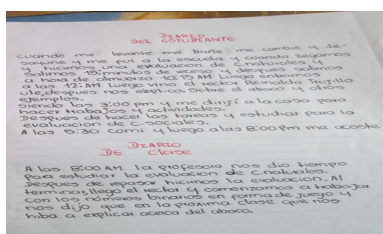 DIARIO
DEL ESTUDIANTE
cuando me levante me bañe, me cambie y de-
sayune y me fui a la escuela y cuando llegamos
y hicimos una evaluacion de C. naturales y
salimos 15 minutos de receso y despues salimos
a hora de almuerzo 10:15 AM luego entramos
a las 12:AM luego vino el rector Reinaldo Trujillo
ule, despues nos explico. Sobre el abaco y otros
ejemplos.
Siendo las 3:00 pm y me dirijí a la casa para
hacer trabajos y actividades.
Despues de hacer las tareas y estudiar para la
evaluacion de C. sociales.
A las 5:30 comi y luego a las 8:00 Pm me acoste.
DIARIO
DE Clase
A las 8:00 AM la profesora nos dio tiempo
Para estudiar la evaluacion de C. naturales.
Despues de repasar hicimos la evaluacion. Al
terminar, llego el rector y comenzamos a trabajar
con los números binarios en forma de juego y
nos dijo que en la proxima clase que nos
hiba a explicar acerca del abaco.